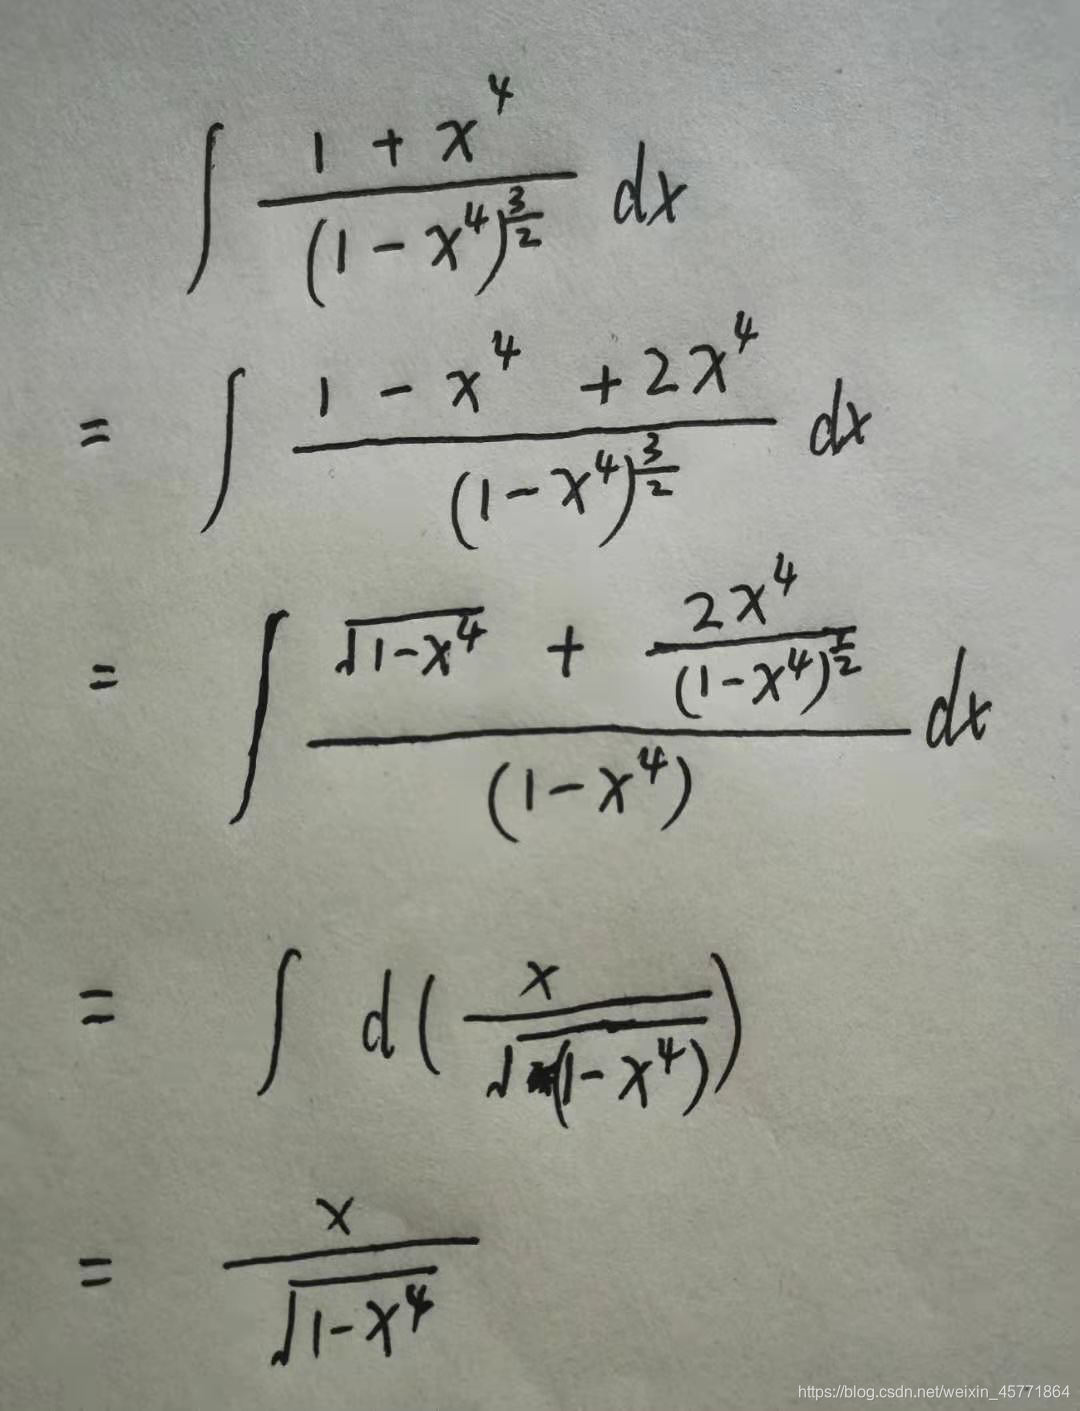 ∫ (1 + x^4)/((1 - x^4)^(3/2)) dx
= ∫ (1 - x^4 + 2x^4)/((1 - x^4)^(3/2)) dx
= ∫ (√(1-x^4) + (2x^4)/((1-x^4)^(1/2)))/((1-x^4)) dx
= ∫ d(x/√((1-x^4)))
= x/√(1-x^4)
https://blog.csdn.net/weixin_45771864